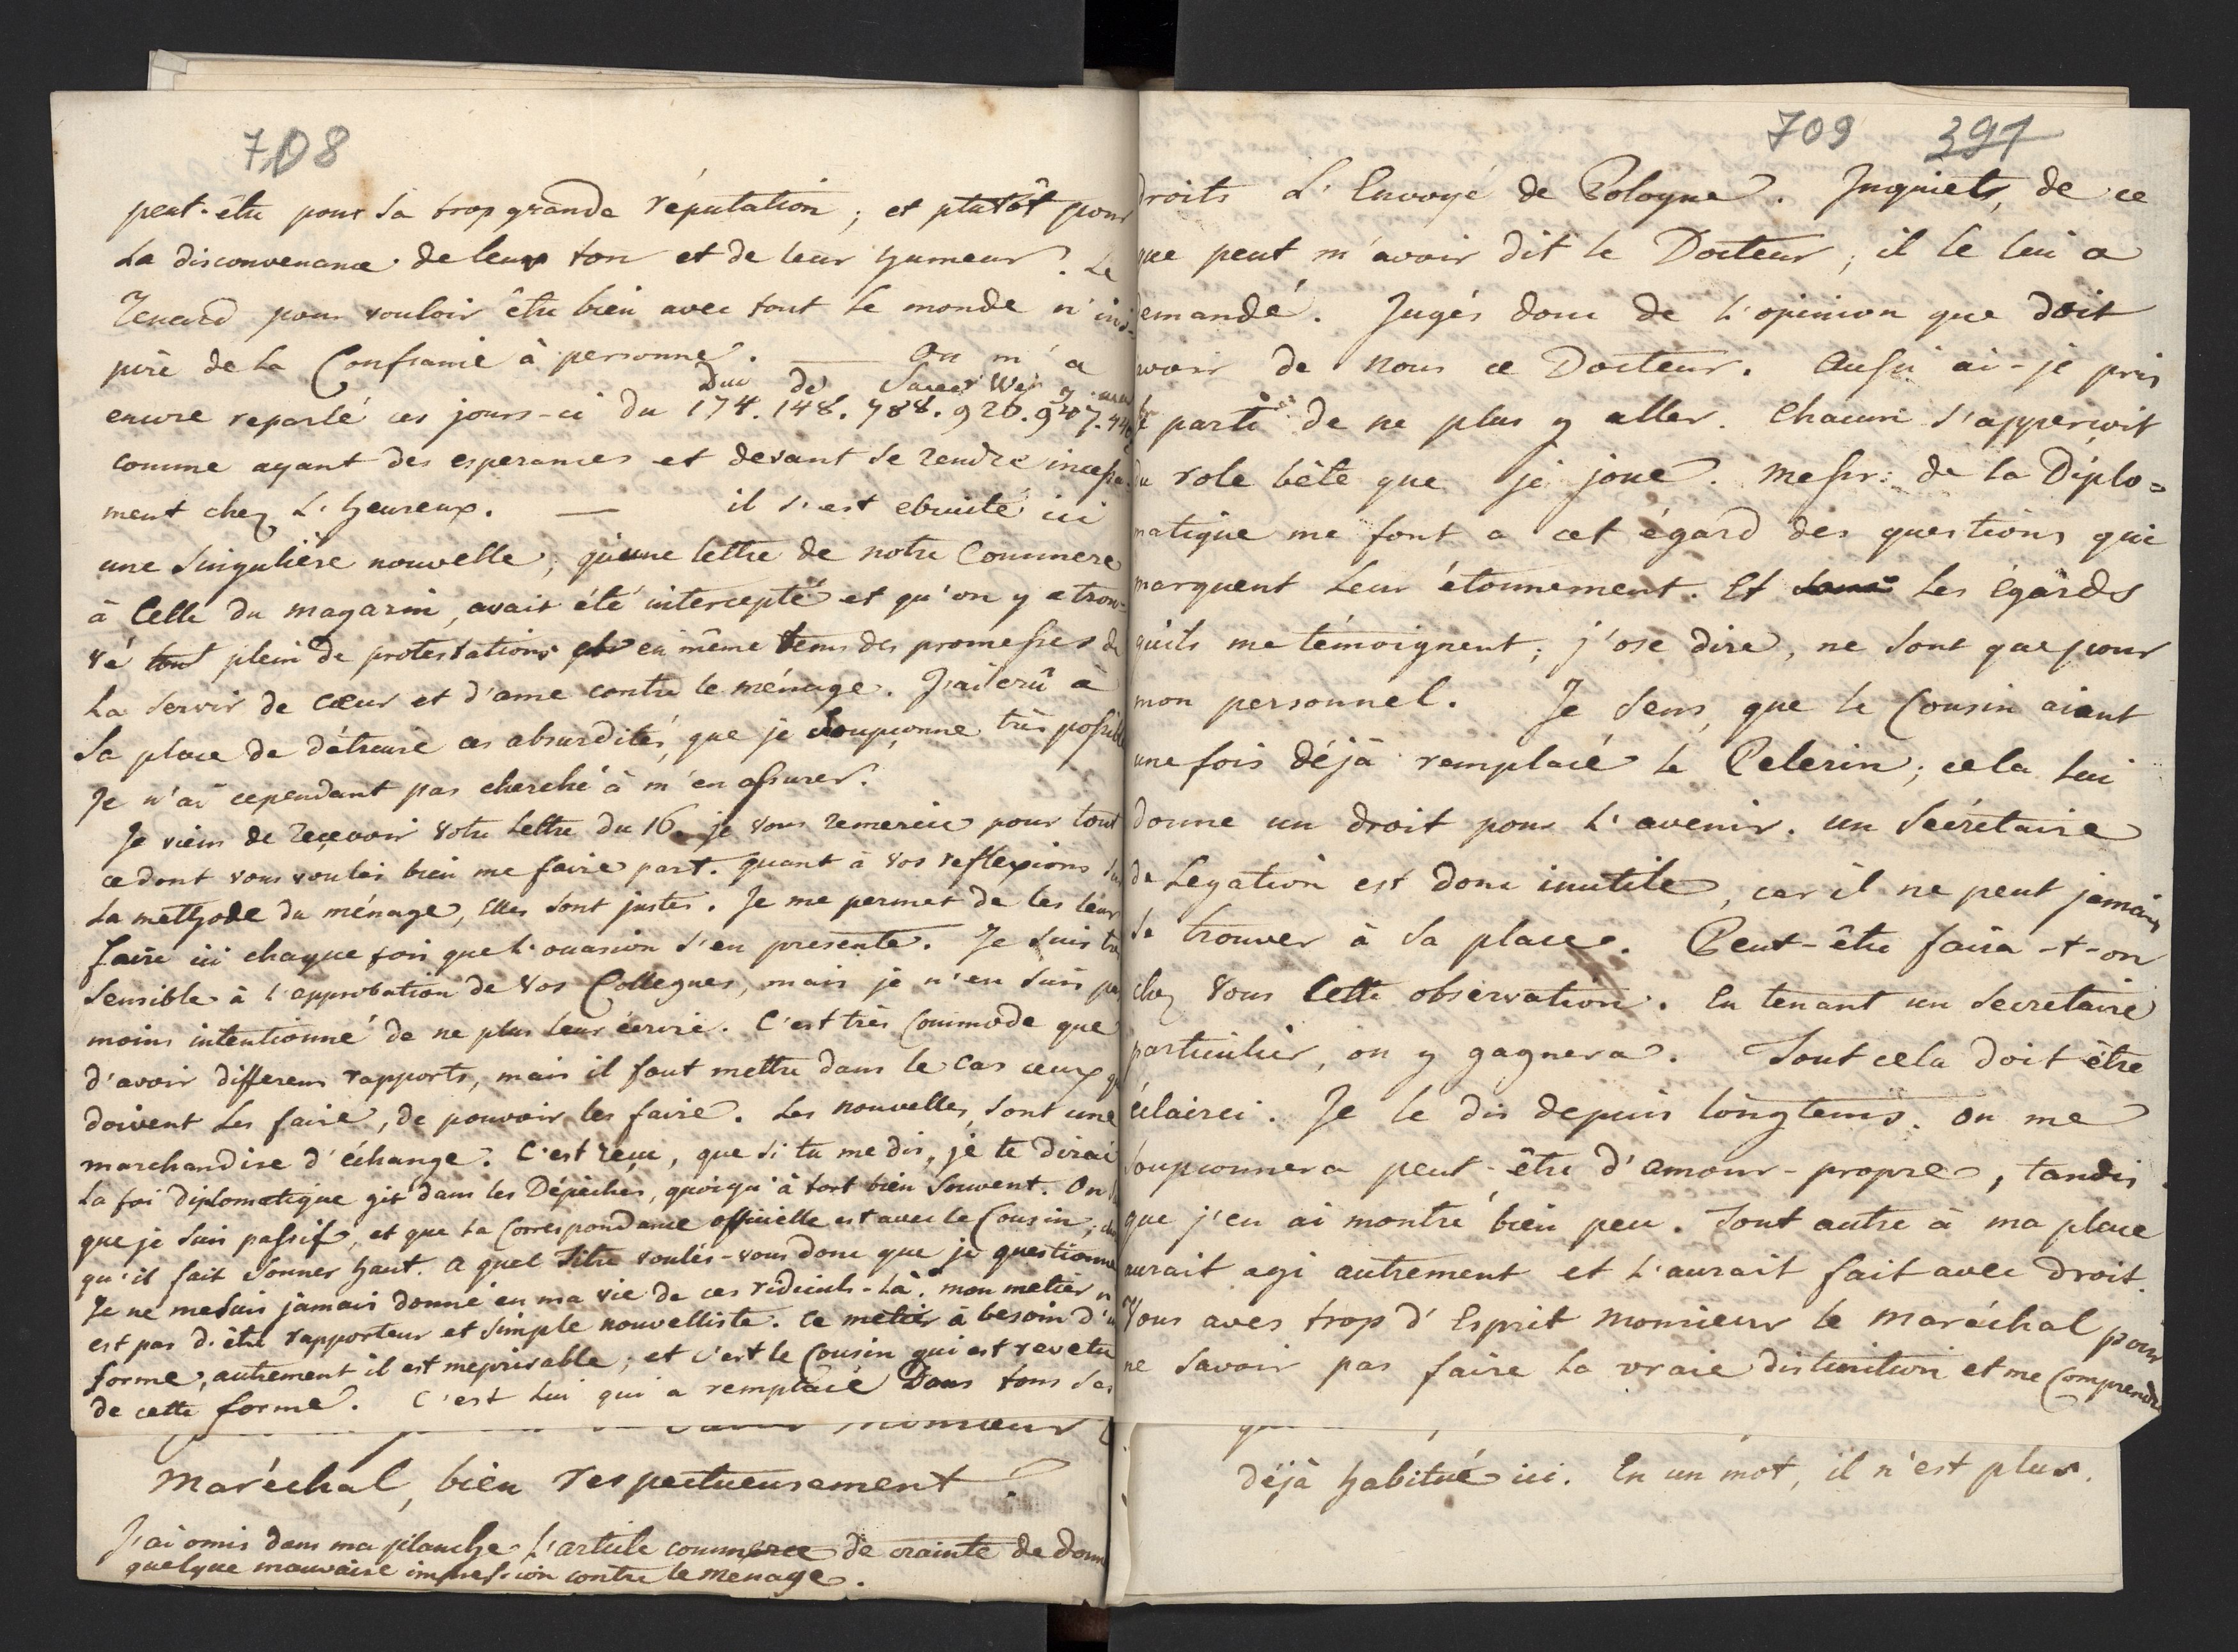 708
peut-être pour sa trop grande réputation; et plutôt pour
la disconvenance de leur ton et de leur humeur. Le
Renard pour vouloir être bien avec tout le monde n'ins-
pire de la Confiance à personne. — On m'a
Duc de Saxe Wey mar
encore reparlé ces jours-ci du 174. 148. 788. 926. 907.
comme ayant des esperances et devant se rendre incessa-
ment chez L'heureux. — il s'est ebruité ici
une singulière nouvelle, qu'une lettre de notre Commere
à Celle du magazin, avait été intercepté et qu'on y a trou-
vé tout plein de protestations et en même tems des promesses de
la servir de cœur et d'ame contre le ménage. J'ai crû à
sa place de détruire ces absurdités, que je soupçonne très possible
Je n'ai cependant pas cherché à m'en assurer.
Je viens de recevoir votre Lettre du 16. je vous remercie pour tout
ce dont vous voulés bien me faire part. quant à vos reflexions sur
la methode du ménage, Elles sont justes. Je me permet de les leur
faire ici chaque fois que l'occasion s'en presente. Je suis très
sensible à l'approbation de vos Collegues, mais je n'en suis pas
moins intentionné de ne plus leur écrire. C'est très Commode que
d'avoir differens rapports, mais il faut mettre dans le cas ceux qui
doivent les faire, de pouvoir les faire. Les nouvelles, sont une
marchandise d'échange. C'est reçu, que si tu me dis, je te dirai
La foi diplomatique git dans les Dépèches, quoiqu'à tort bien souvent. On
que je suis passif, et que la Correspondance officielle est avec le Cousin;
qu'il fait sonner haut. a quel Titre voulés-vous donc que je questionne
Je ne me suis jamais donné en ma vie de ces ridiculs-là. mon metier n'
est pas d'être rapporteur et simple nouvelliste. Ce metier à besoin d'une
forme, autrement il est meprisable; et c'est le Cousin qui est revetu
de cette forme. C'est lui qui a remplacé Dans tous ses
Monsieur
Maréchal, bien respectueusement.
J'ai omis dans ma planche l'article commerce de crainte de donner
quelque mauvaise impression contre le menage.
709 391
droits L'Envoyé de Pologne. Inquiets, de ce
que peut m'avoir dit le Docteur; il le lui a
demandé. Jugés donc de l'opinion que doit
avoir de nous ce Docteur. Aussi ai-je pris
le parti de ne plus y aller. Chacun s'apperçoit
du role bête que je joue. Messrs: de la Diplo=
matique me font a cet égard des questions qui
marquent leur étonnement. Et les Egards
qu'ils me témoignent; j'ose dire, ne sont que pour
mon personnel. Je sens, que le Cousin aiant
une fois déjà remplacé le Pelerin; cela lui
donne un droit pour l'avenir. un Secrétaire
de Legation est donc inutile, car il ne peut jamais
se trouver à sa place. Peut-être faira-t-on
chez vous Cette observation. En tenant un secretaire
particulier, on y gagnera. Tout cela doit être
éclairci. Je le dis depuis longtems. on me
soupçonnera peut-être d'amour-propre, tandis
que j'en ai montré bien peu. Tout autre à ma place
aurait agi autrement et l'aurait fait avec droit.
Vous aves trop d'Esprit Monsieur le Maréchal pour
ne savoir pas faire la vraie distinction et me Comprendre
déjà habitué ici. En un mot, il n'est plus.